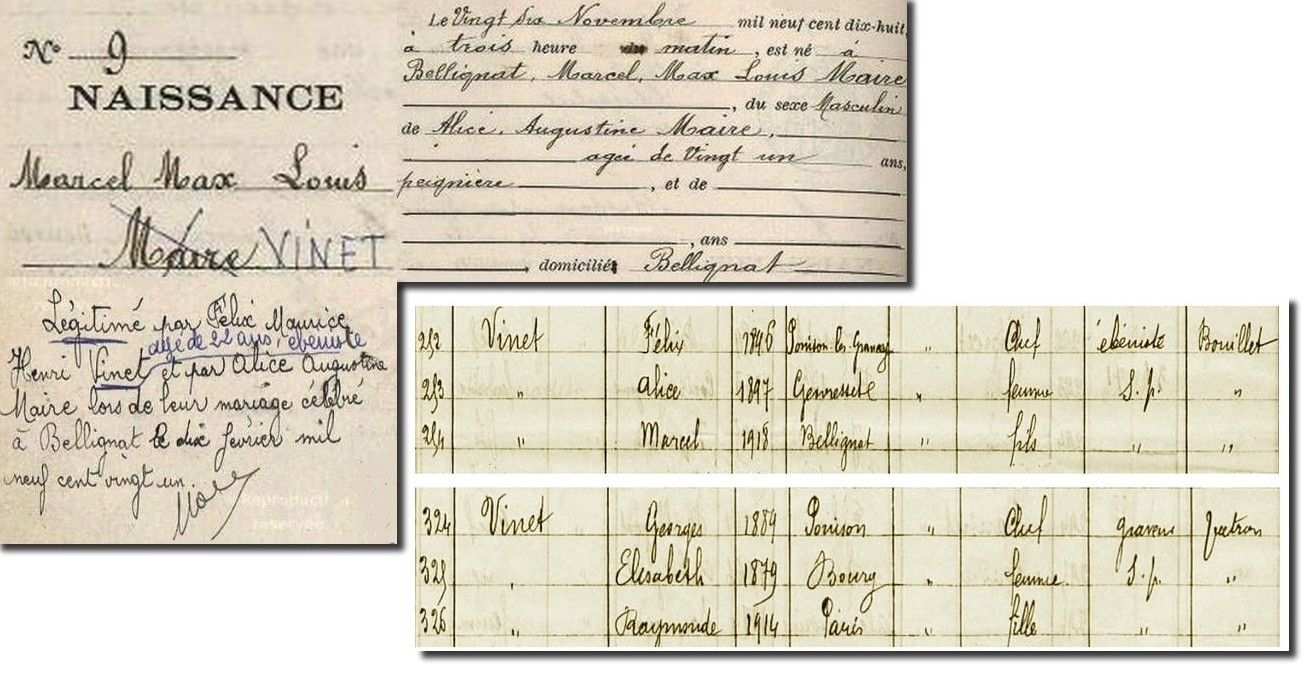 N° 9
NAISSANCE
Marcel Max Louis
Maire VINET
Légitimé par Félix Maurice
agé de 22 ans, ébéniste
Henri Vinet et par Alice Augustine
Maire lors de leur mariage célébré
à Bellignat le dix février mil
neuf cent vingt un.
Le Vingt six Novembre mil neuf cent dix-huit,
à trois heure du matin, est né à
Bellignat, Marcel, Max Louis Maire
, du sexe Masculin
de Alice, Augustine Maire,
agée de Vingt un ans,
peignière, et de
, ans
, domicilié Bellignat
252 Vinet Félix 1896 " Chef ébéniste Bouillet
253 " Alice 1897 " femme S.p. "
254 " Marcel 1918 Bellignat " fils " "
324 Vinet Georges 1889 " Chef graveur patron
325 " Elisabeth 1879 Bourg " femme S.p. "
326 " Raymonde 1914 Paris " fille " "